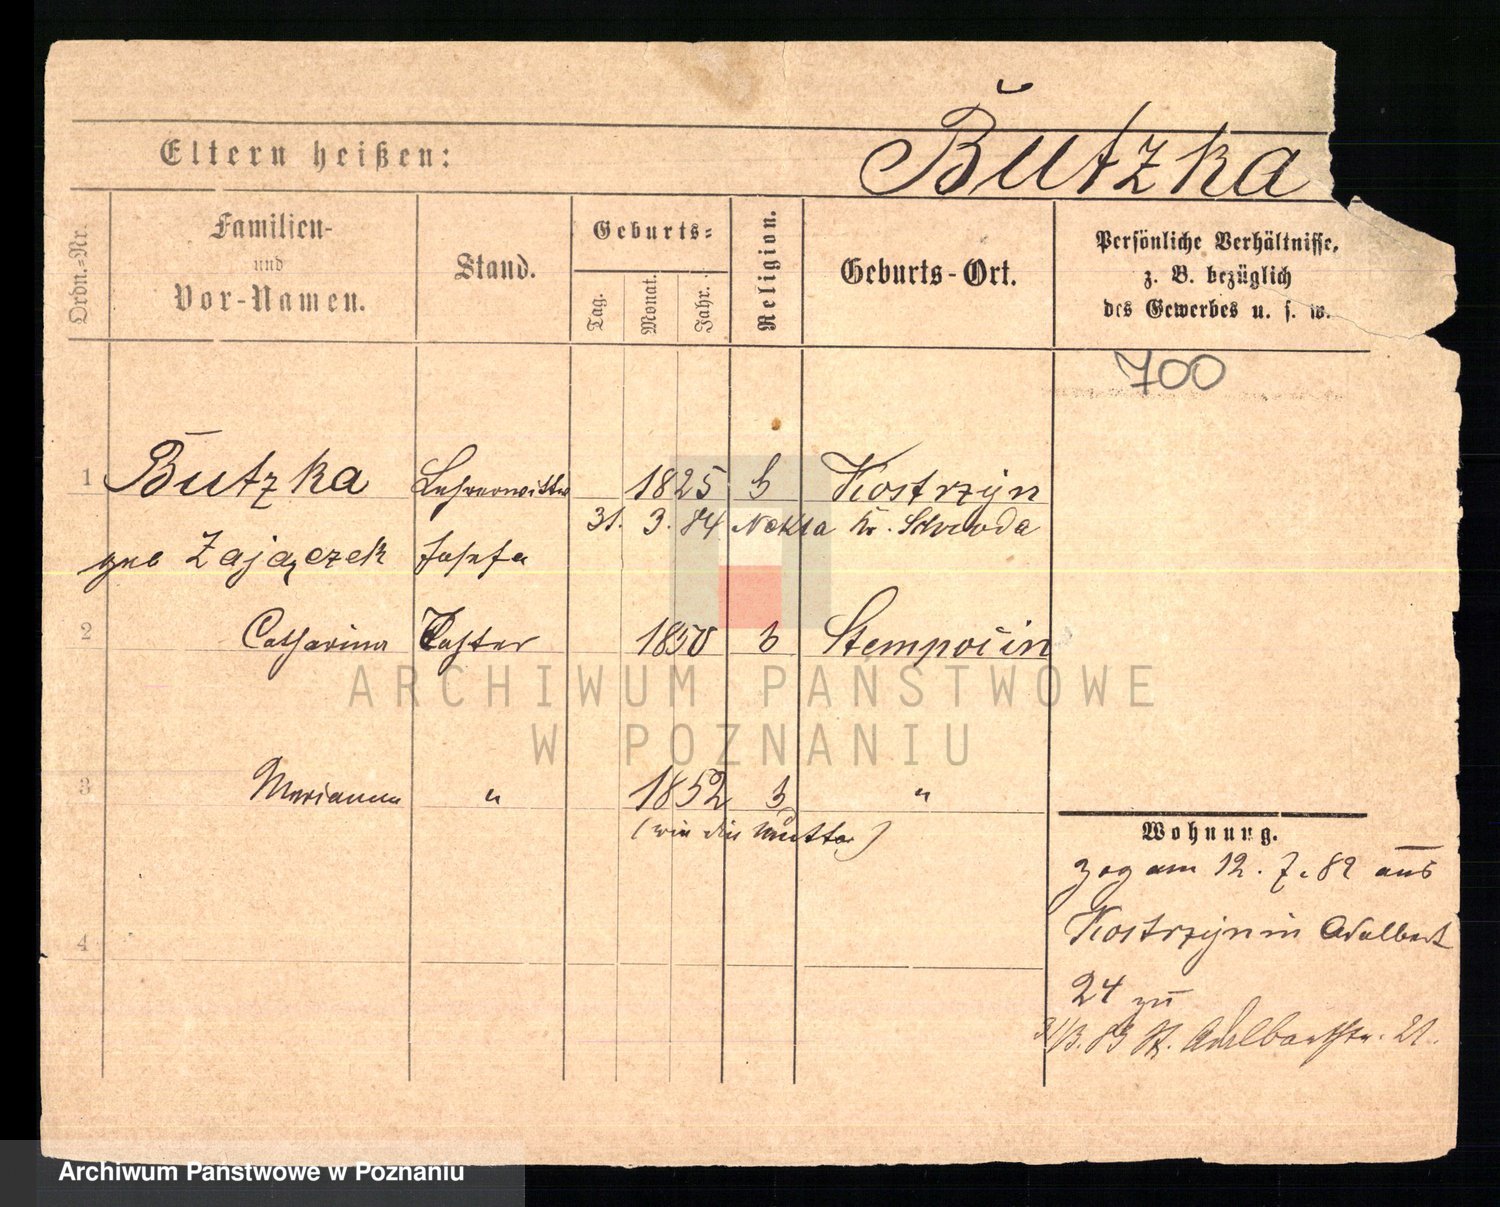 Butzka
Eltern heißen:
Ordn.-Nr.
Familien-
und
Vor-Namen.
Stand.
Geburts-
Tag.
Monat.
Jahr.
Religion.
Geburts-Ort.
Persönliche Verhältnisse,
z. B. bezüglich
des Gewerbes u. s. w.
700
1 Butzka Lehrerwittwe 1825 Kostrzyn
31. 3. 84 Nekla Kr. Schroda
geb Zajączek Josefa
2 Catharina Tochter 1850 Stempocin
ARCHIWUM PAŃSTWOWE
W POZNANIU
3 Marianna " 1852 "
(wie die Mutter)
Wohnung.
zog am 12. 7. 82 aus
Kostrzyn in Adalbert
24 zu
31/3. 83 St. Adalbertstr. 21.
4
Archiwum Państwowe w Poznaniu